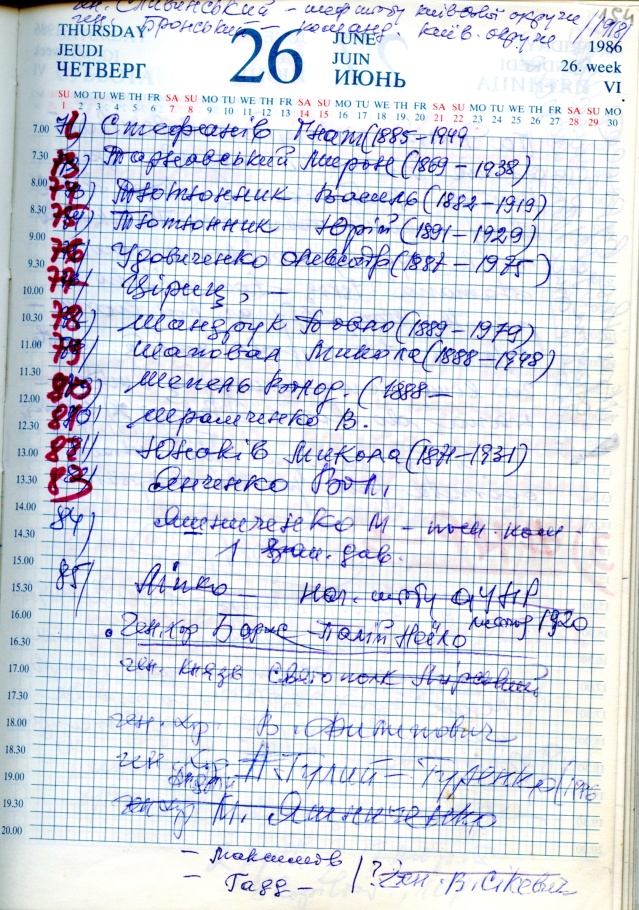 ген. Сливінський – шеф штабу київської округи /1918/
ген. Бронський – команд. Київ. округи
154
THURSDAY
JEUDI
ЧЕТВЕРГ
26
JUNE
JUIN
ИЮНЬ
1986
26. week
VI
SU MO TU WE TH FR SA SU MO TU WE TH FR SA SU MO TU WE TH FR SA SU MO TU WE TH FR SA SU MO
1 2 3 4 5 6 7 8 9 10 11 12 13 14 15 16 17 18 19 20 21 22 23 24 25 26 27 28 29 30
7.00 Стефанів Гнат (1885–1949
7.30 73) Тарнавський Мирон (1869–1938)
8.00 74) Тютюнник Василь (1882–1919)
8.30 75) Тютюнник Юрій (1891–1929)
9.00 76) Удовиченко Олександр (1887–1975)
9.30 77) Ціріц, –
10.00
10.30 78) Шандрук Павло (1889–1979)
11.00 79) Шаповал Микола (1888–1948)
11.30 80) Шепель Волод. (1888–
12.00 81) Шрамченко В.
12.30 82) Юнаків Микола (1871–1931)
13.00 83) Янченко Вол.
13.30
14.00 84) Яшниченко М – пом. ком
14.30 1 див.
15.00 85) Ліпко – нач. штабу АУНР
15.30 листопад 1920
16.00 • Ген. хор Барис – Палій Неїло
16.30 ген. князь Святополк Мирський
17.00
17.30 ген. хор. В. Филипович
18.00
18.30 ген. хор А. Гулий – Гуленко (1976
19.00
19.30 ген хор М. Яшниченко
20.00
– Максимов
– Гадд – /? Ген. В. Сікевич